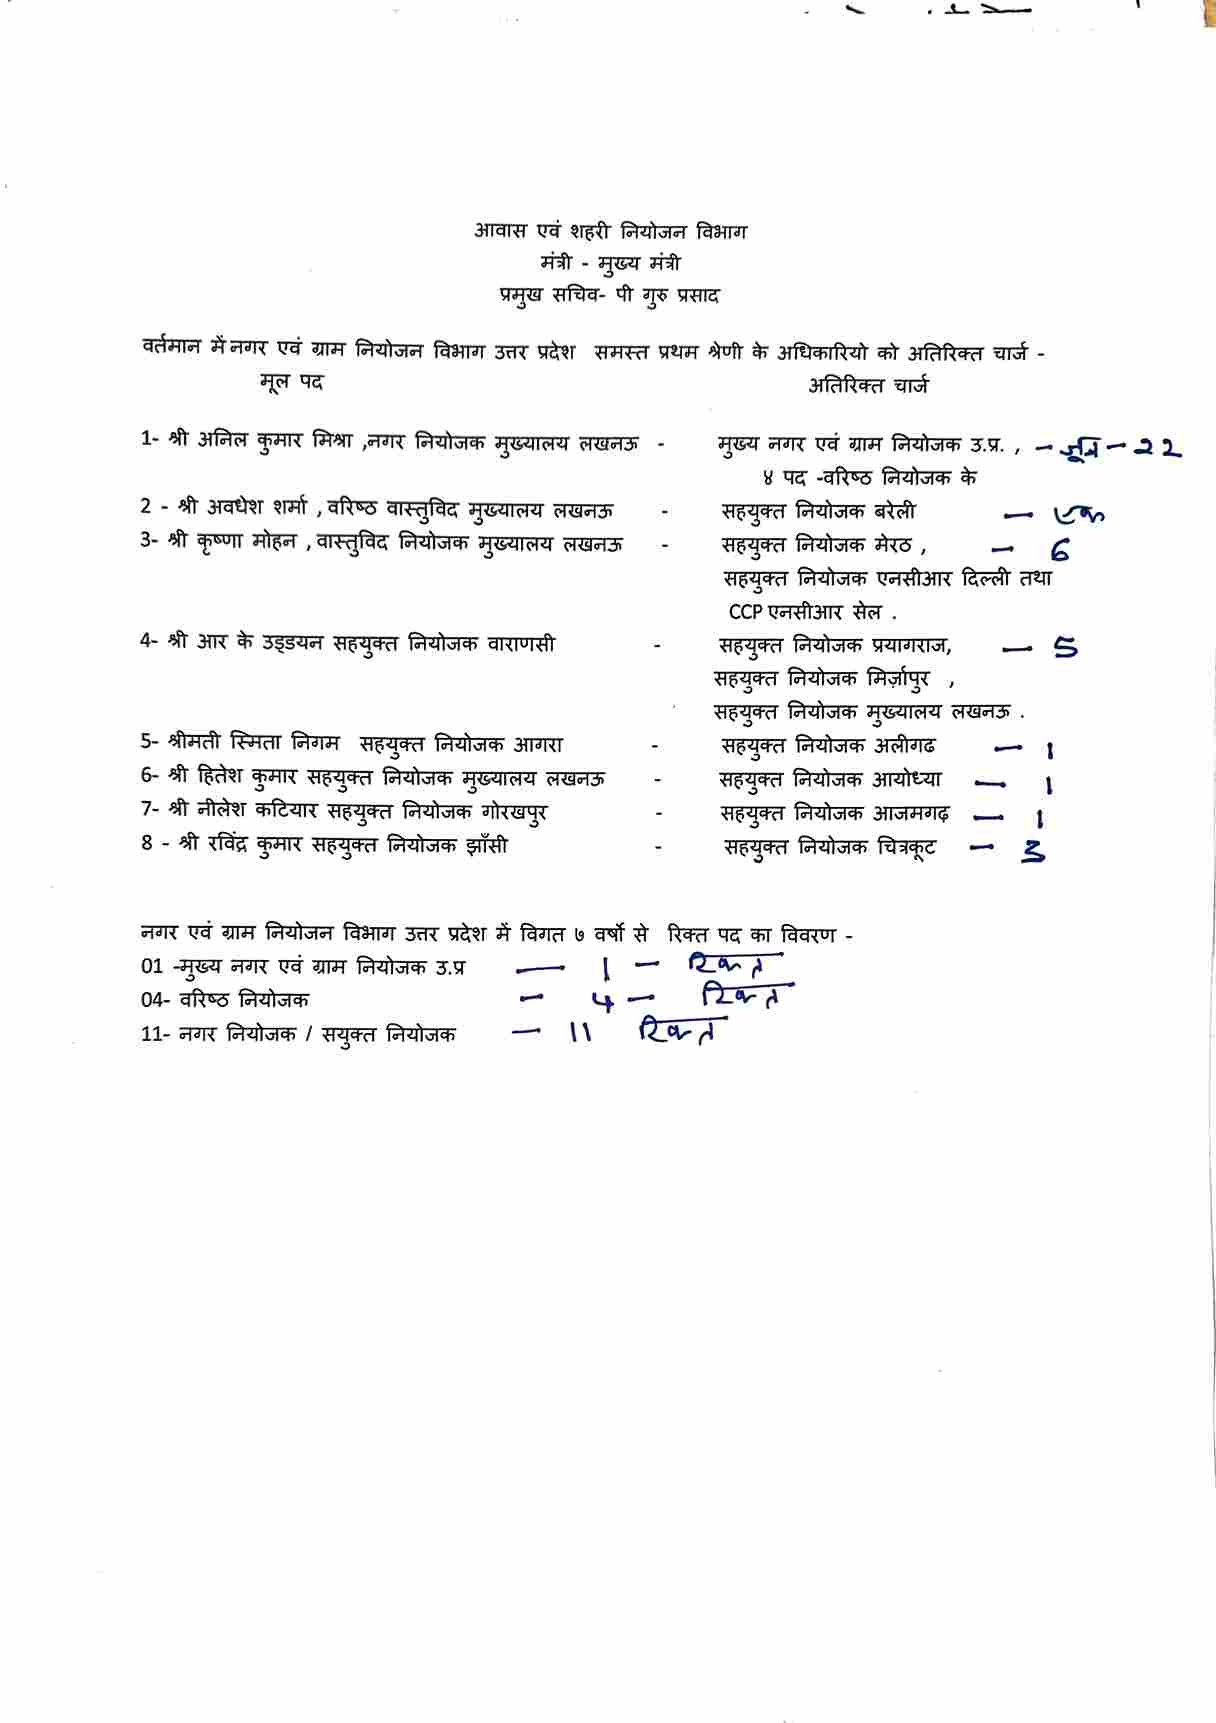 आवास एवं शहरी नियोजन विभाग
मंत्री - मुख्य मंत्री
प्रमुख सचिव- पी गुरु प्रसाद
वर्तमान में नगर एवं ग्राम नियोजन विभाग उत्तर प्रदेश समस्त प्रथम श्रेणी के अधिकारियो को अतिरिक्त चार्ज -
मूल पद अतिरिक्त चार्ज
1- श्री अनिल कुमार मिश्रा ,नगर नियोजक मुख्यालय लखनऊ - मुख्य नगर एवं ग्राम नियोजक उ.प्र. , - जून - 22
४ पद -वरिष्ठ नियोजक के
2 - श्री अवधेश शर्मा , वरिष्ठ वास्तुविद मुख्यालय लखनऊ - सहयुक्त नियोजक बरेली - एक
3- श्री कृष्णा मोहन , वास्तुविद नियोजक मुख्यालय लखनऊ - सहयुक्त नियोजक मेरठ , - 6
सहयुक्त नियोजक एनसीआर दिल्ली तथा
CCP एनसीआर सेल .
4- श्री आर के उड्डयन सहयुक्त नियोजक वाराणसी - सहयुक्त नियोजक प्रयागराज, - 5
सहयुक्त नियोजक मिर्ज़ापुर ,
सहयुक्त नियोजक मुख्यालय लखनऊ .
5- श्रीमती स्मिता निगम सहयुक्त नियोजक आगरा - सहयुक्त नियोजक अलीगढ - 1
6- श्री हितेश कुमार सहयुक्त नियोजक मुख्यालय लखनऊ - सहयुक्त नियोजक आयोध्या - 1
7- श्री नीलेश कटियार सहयुक्त नियोजक गोरखपुर - सहयुक्त नियोजक आजमगढ़ - 1
8 - श्री रविंद्र कुमार सहयुक्त नियोजक झाँसी - सहयुक्त नियोजक चित्रकूट - 3
नगर एवं ग्राम नियोजन विभाग उत्तर प्रदेश में विगत ७ वर्षो से रिक्त पद का विवरण -
01 -मुख्य नगर एवं ग्राम नियोजक उ.प्र - 1 - रिक्त
04- वरिष्ठ नियोजक - 4 - रिक्त
11- नगर नियोजक / सयुक्त नियोजक - 11 रिक्त